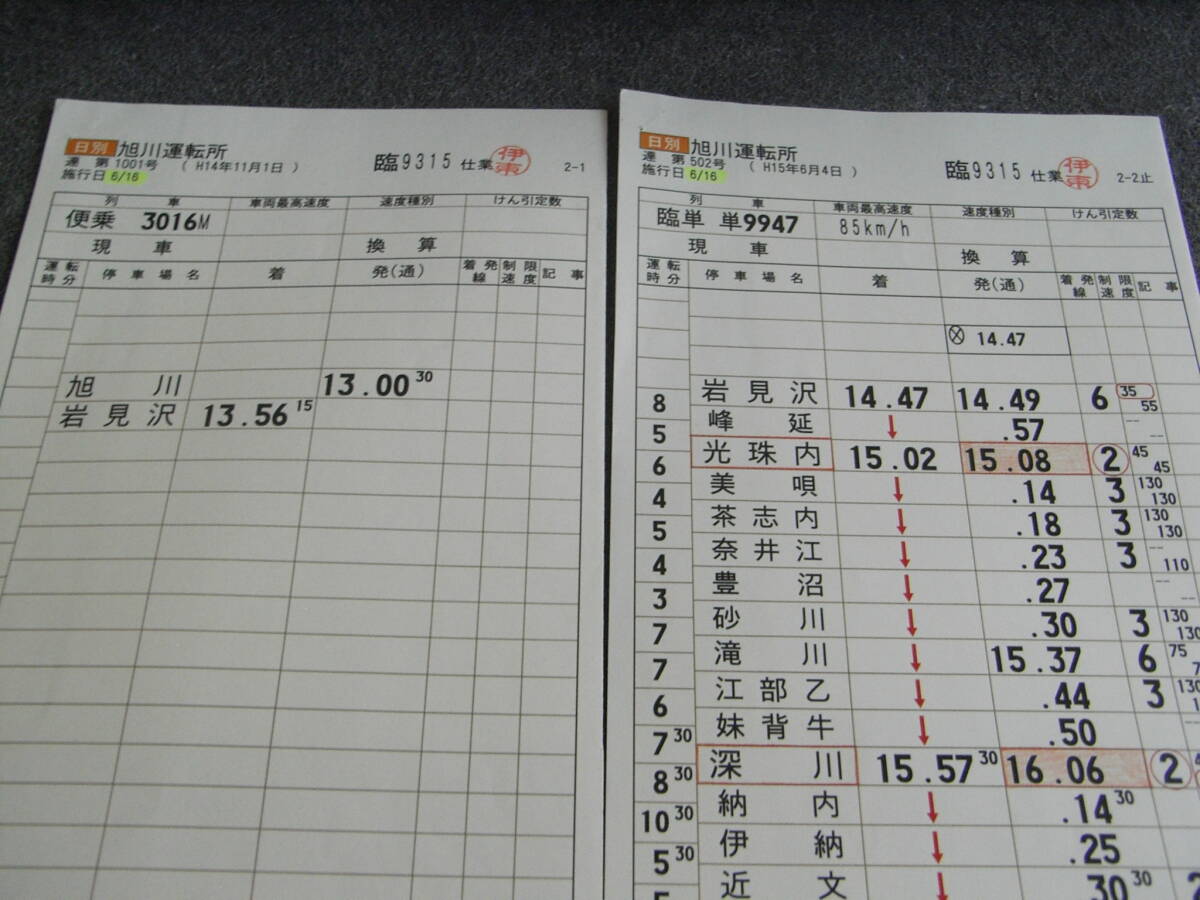 日別 旭川運転所
運 第1001号 ( H14年11月1日 )
施行日 6/16
臨9315 仕業 伊東 2-1
列車 車両最高速度 速度種別 けん引定数
便乗 3016M
現車 換算
運転時分 停車場名 着 発(通) 着発線 制限速度 記事
旭川 13.00 30
岩見沢 13.56 15
日別 旭川運転所
運 第502号 ( H15年6月4日 )
施行日 6/16
臨9315 仕業 伊東 2-2止
列車 車両最高速度 速度種別 けん引定数
臨単 単9947 85km/h
現車 換算
運転時分 停車場名 着 発(通) 着発線 制限速度 記事
⊗ 14.47
岩見沢 14.47 14.49 6 35 55
8
峰延 ↓ .57 -- --
5
光珠内 15.02 15.08 ② 45 45
6
美唄 ↓ .14 3 130 130
4
茶志内 ↓ .18 3 130 130
5
奈井江 ↓ .23 3 -- 110
4
豊沼 ↓ .27 -- --
3
砂川 ↓ .30 3 130 130
7
滝川 ↓ 15.37 6 75
7
江部乙 ↓ .44 3 130
6
妹背牛 ↓ .50
7 30
深川 15.57 30 16.06 ②
8 30
納内 ↓ .14 30
10 30
伊納 ↓ .25
5 30
近文 ↓ .30 30